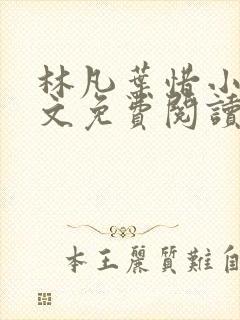 林凡葉惜小
文免費閱讀
本王麗質難自